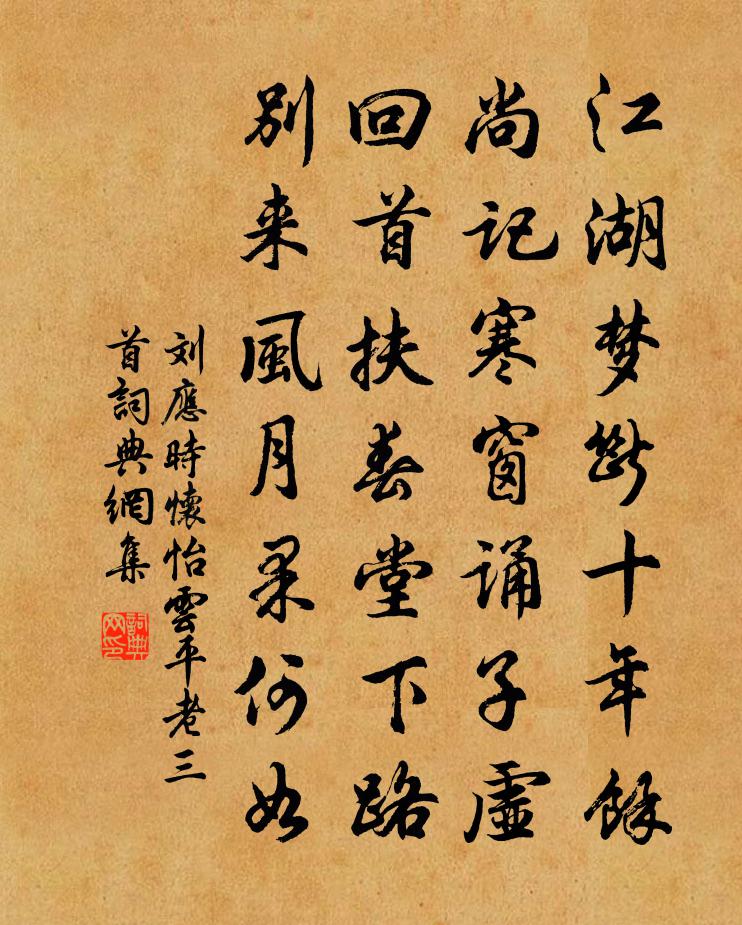 江湖梦断十年餘
尚记寒窗诵子虛
回首扶春堂下路
別来風月果何如
刘應時懷怡雲平老三
首詞典網集
詞典网印